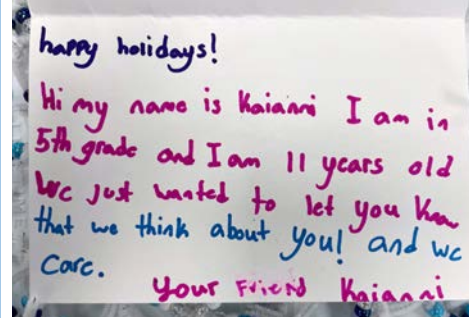 happy holidays!
Hi my name is Kaianni I am in
5th grade and I am 11 years old
We just wanted to let you know
that we think about you! and we
care.
Your Friend Kaianni